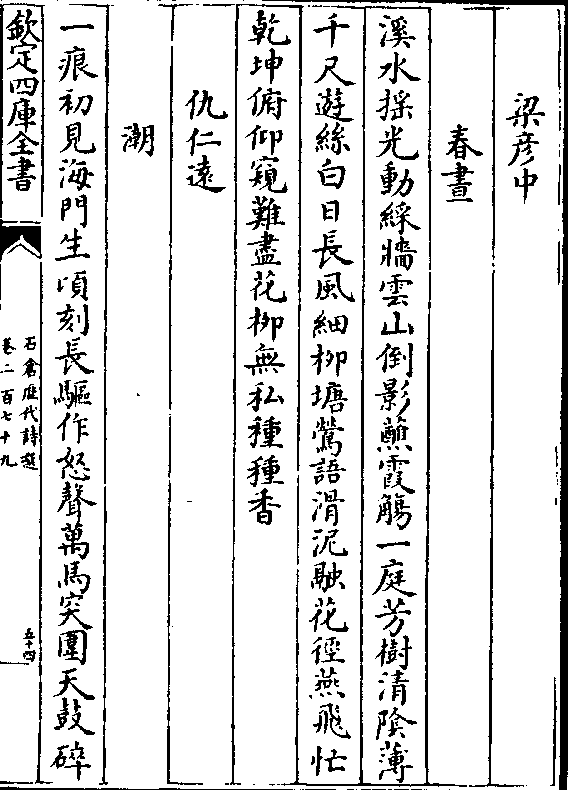 梁彥中
春晝
溪水搖光動綵牆雲山倒影蘸霞觴一庭芳樹清陰薄
千尺遊絲白日長風細柳塘鶯語滑泥融花徑燕飛忙
乾坤俯仰窺難盡花柳無私種種香
仇仁遠
潮
一痕初見海門生頃刻長驅作怒聲萬馬突圍天鼓碎
欽定四庫全書
石倉歷代詩選
卷二百七十九
五十四